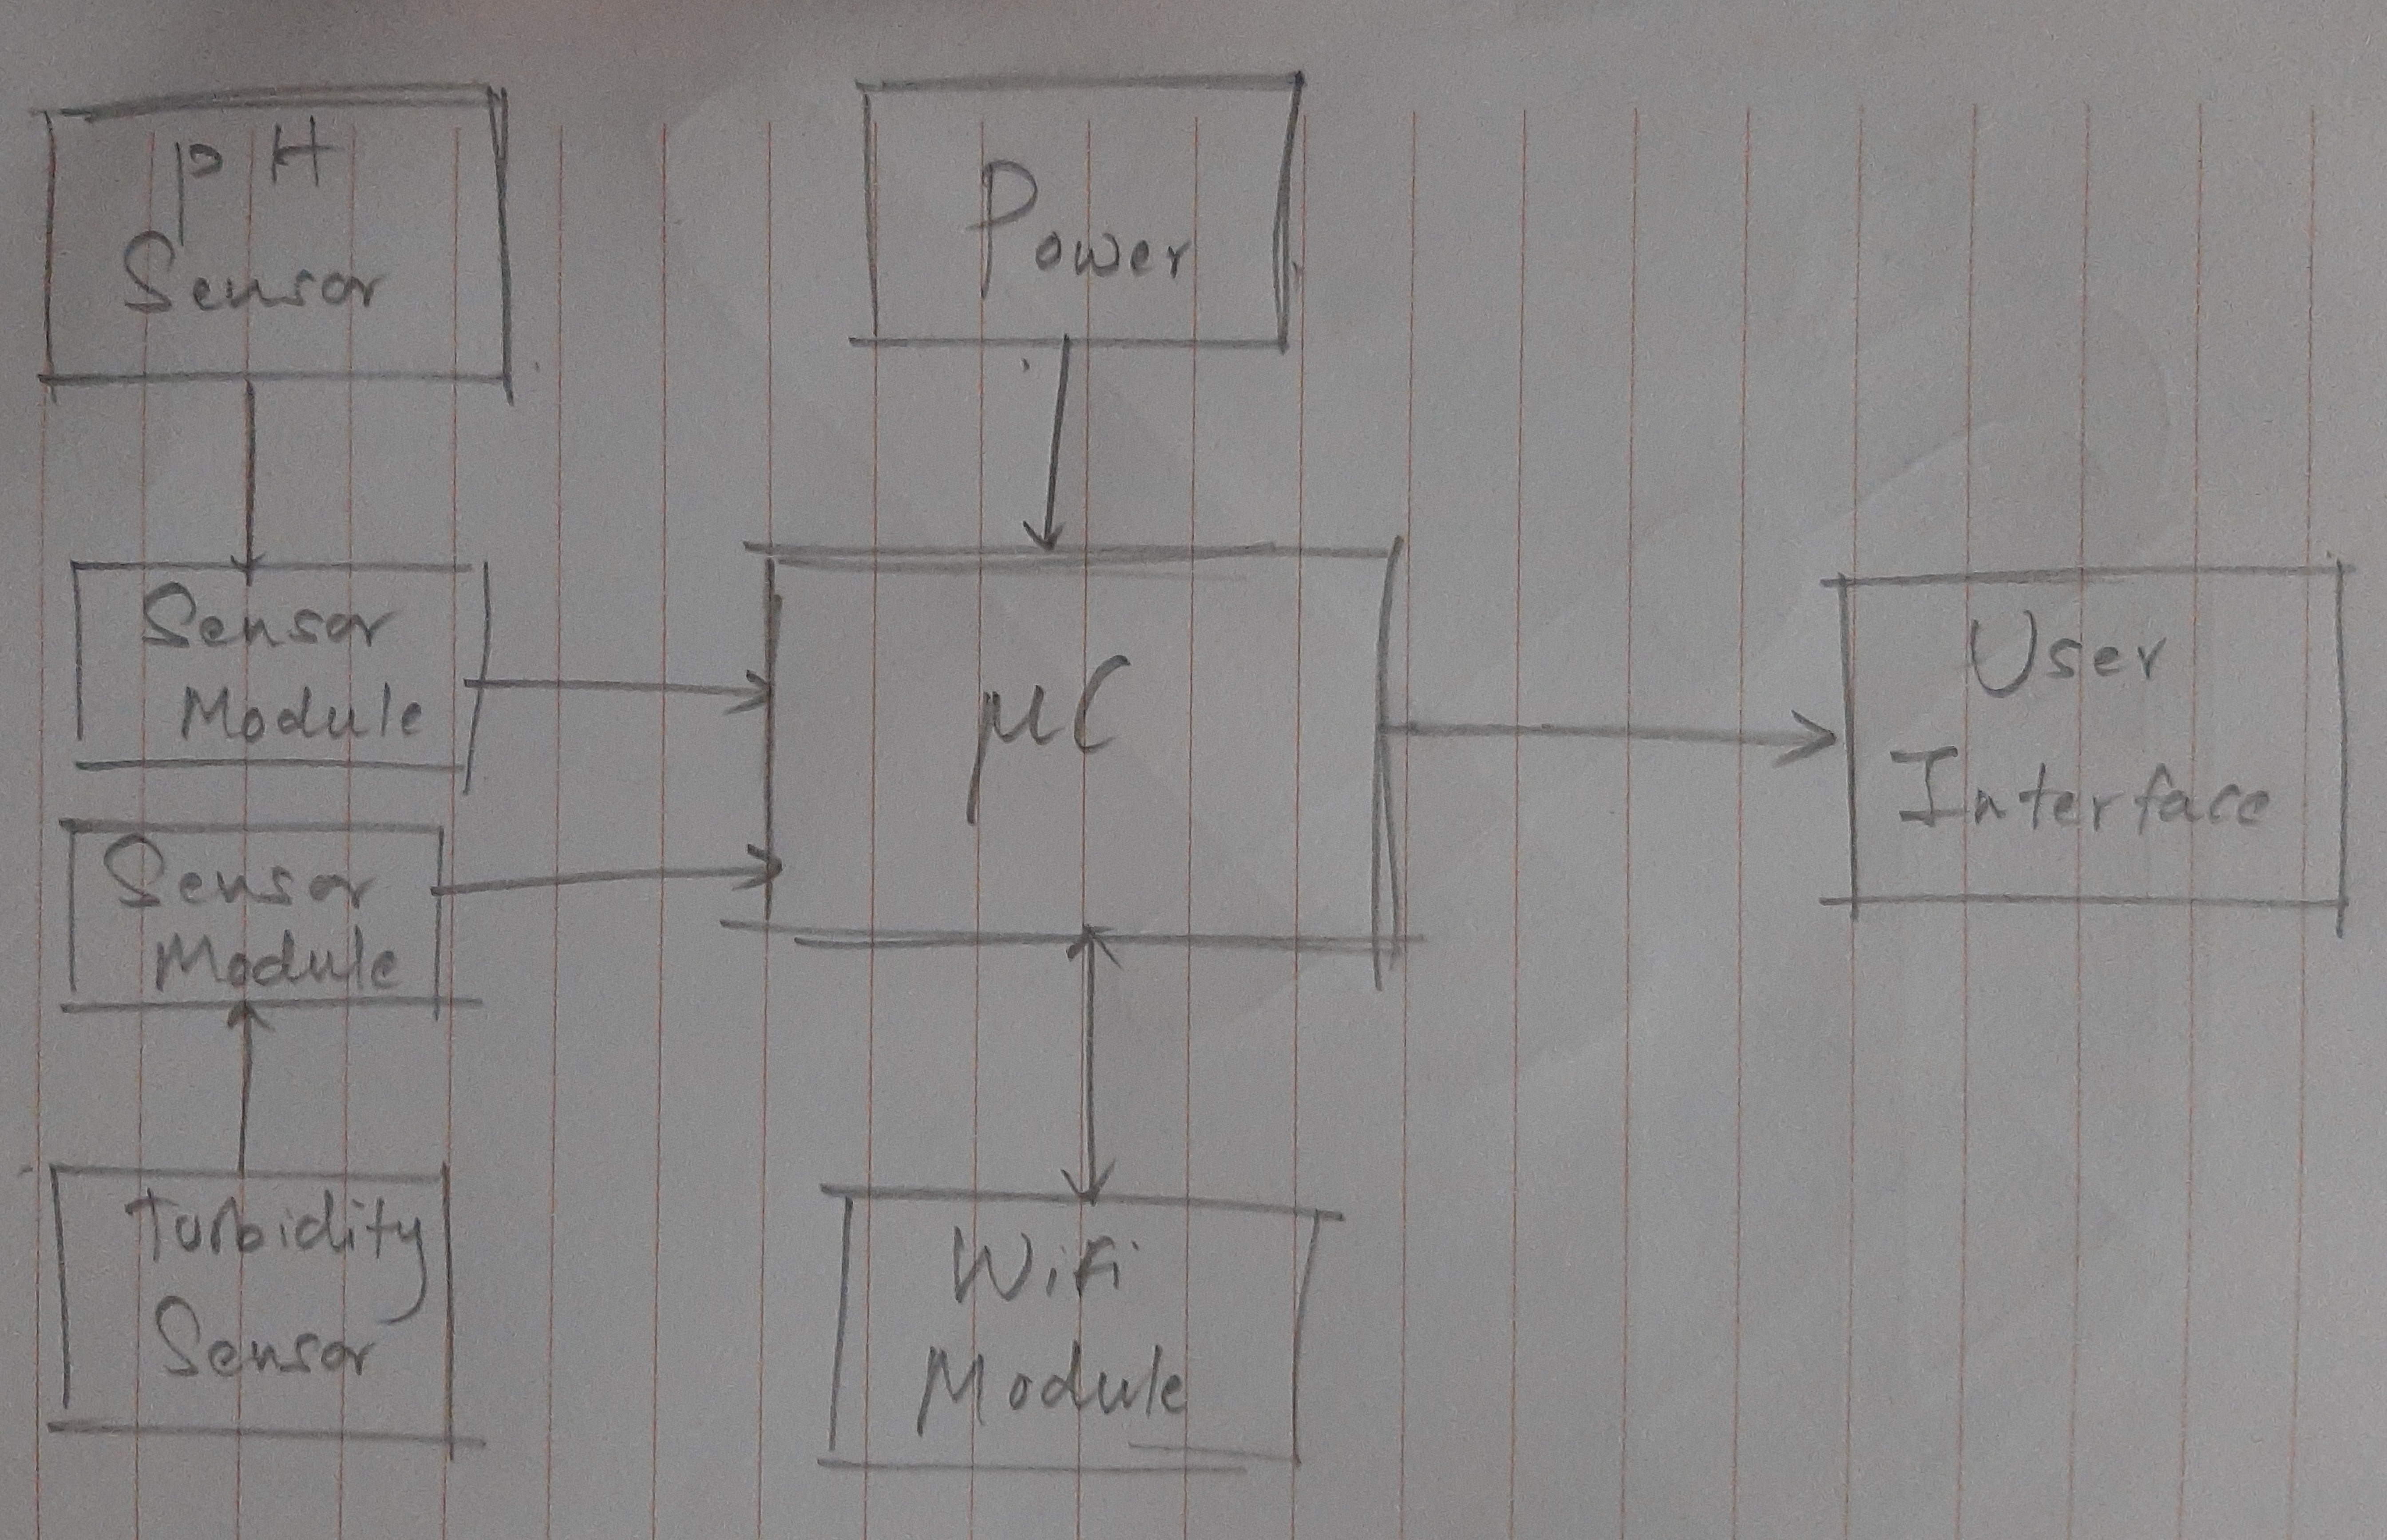 pH
Sensor
Power
Sensor
Module
µC
User
Interface
Sensor
Module
Turbidity
Sensor
Wifi
Module